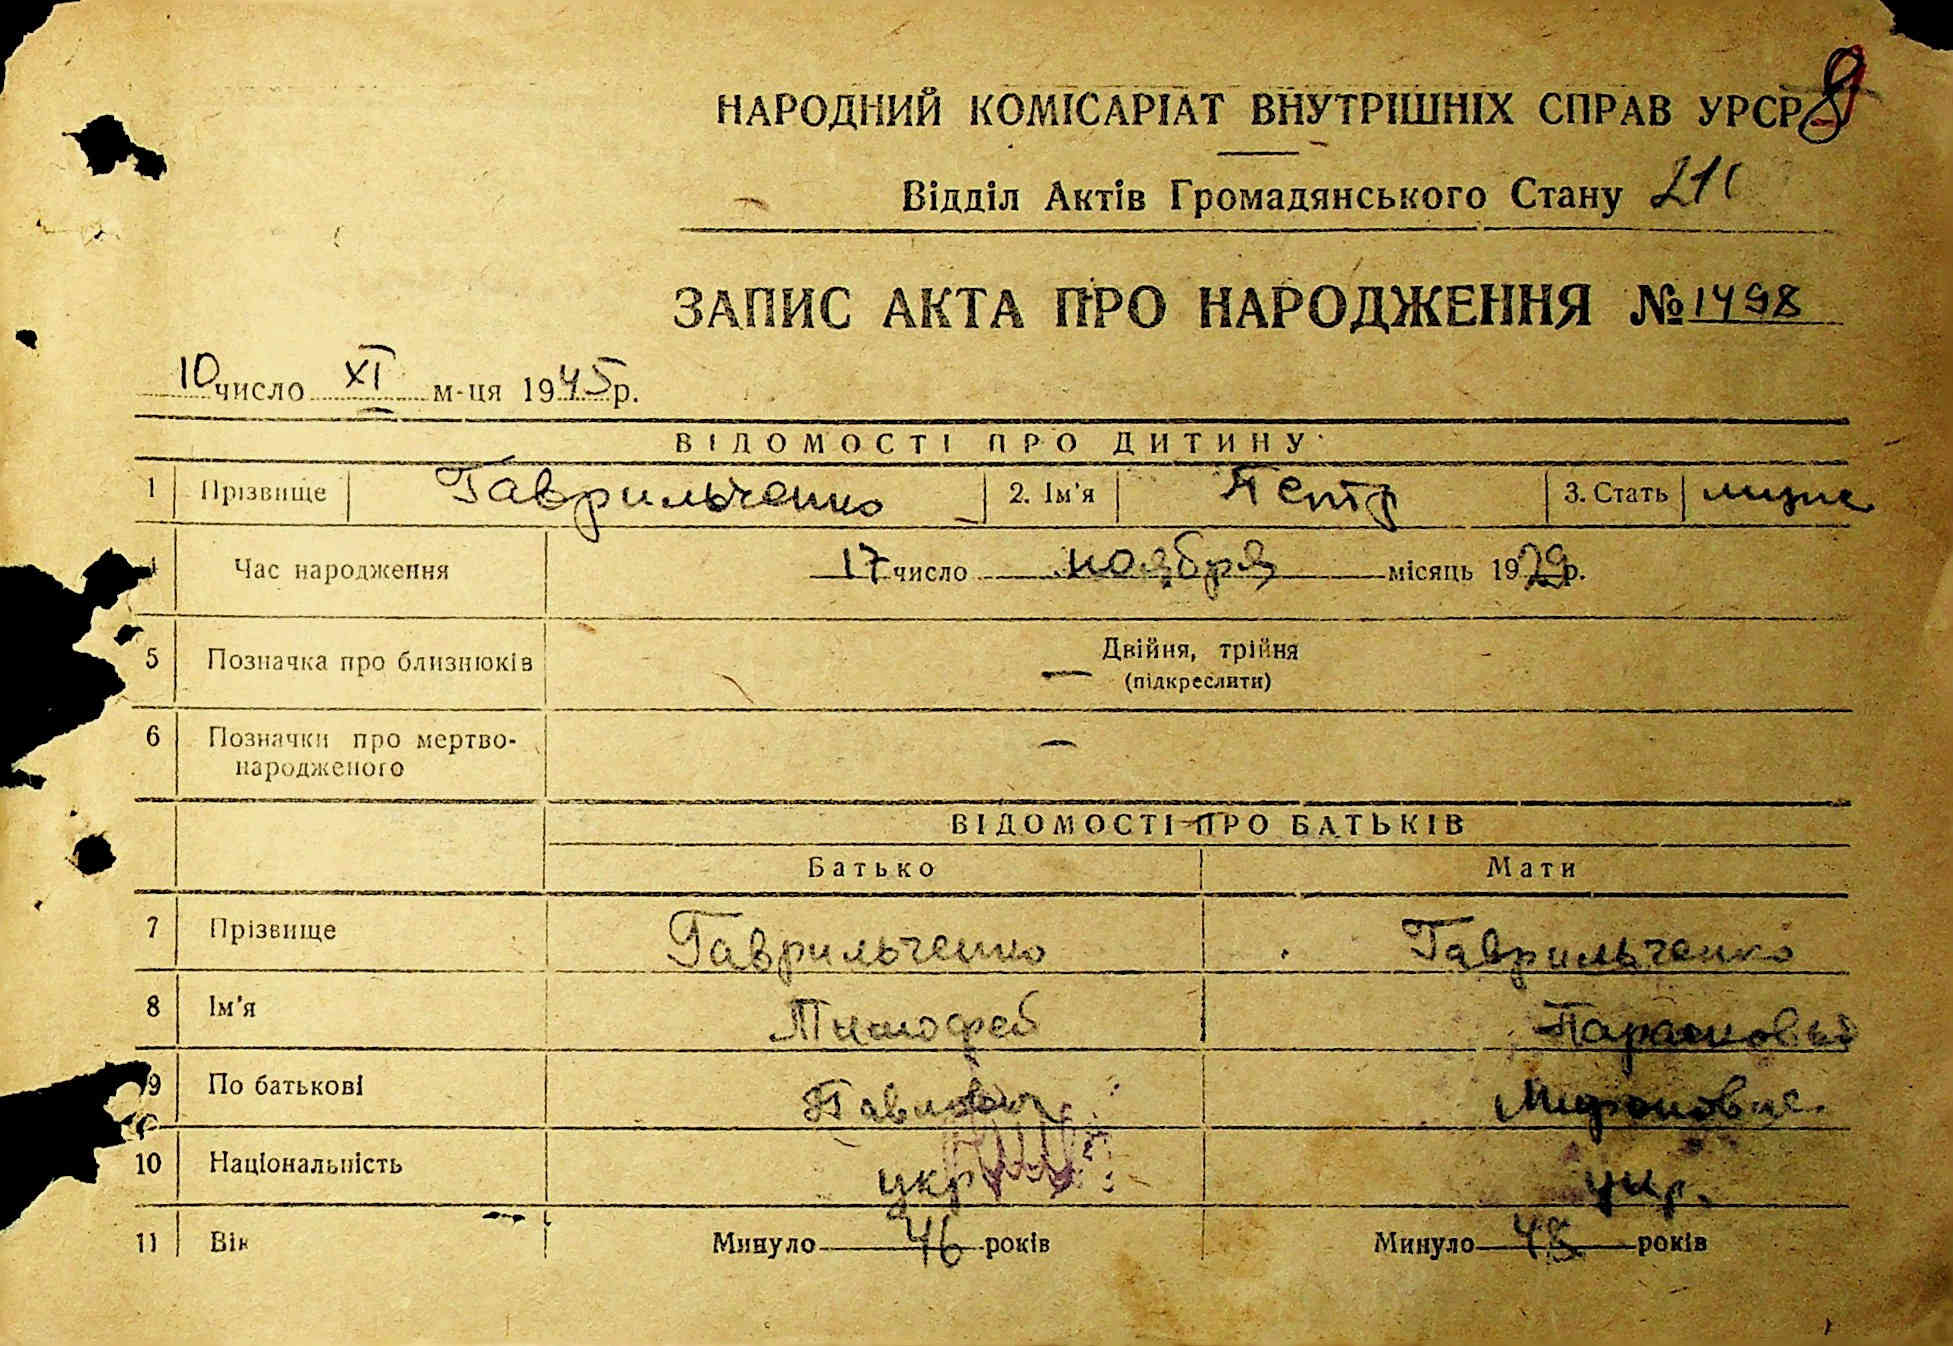 НАРОДНИЙ КОМІСАРІАТ ВНУТРІШНІХ СПРАВ УРСР
Відділ Актів Громадянського Стану
ЗАПИС АКТА ПРО НАРОДЖЕННЯ № 1498
10 число XI м-ця 1945 р.
ВІДОМОСТІ ПРО ДИТИНУ
1 Прізвище Гаврильченко 2. Ім'я Петр 3. Стать
Час народження 17 число ноября місяць 1929 р.
5 Позначка про близнюків Двійня, трійня —
(підкреслити)
6 Позначки про мертво- —
народженого
ВІДОМОСТІ ПРО БАТЬКІВ
Батько Мати
7 Прізвище Гаврильченко Гаврильченко
8 Ім'я Тимофей Парасковья
9 По батькові Павлович Мироновна
10 Національність укр укр.
11 Вік Минуло 46 років Минуло 48 років